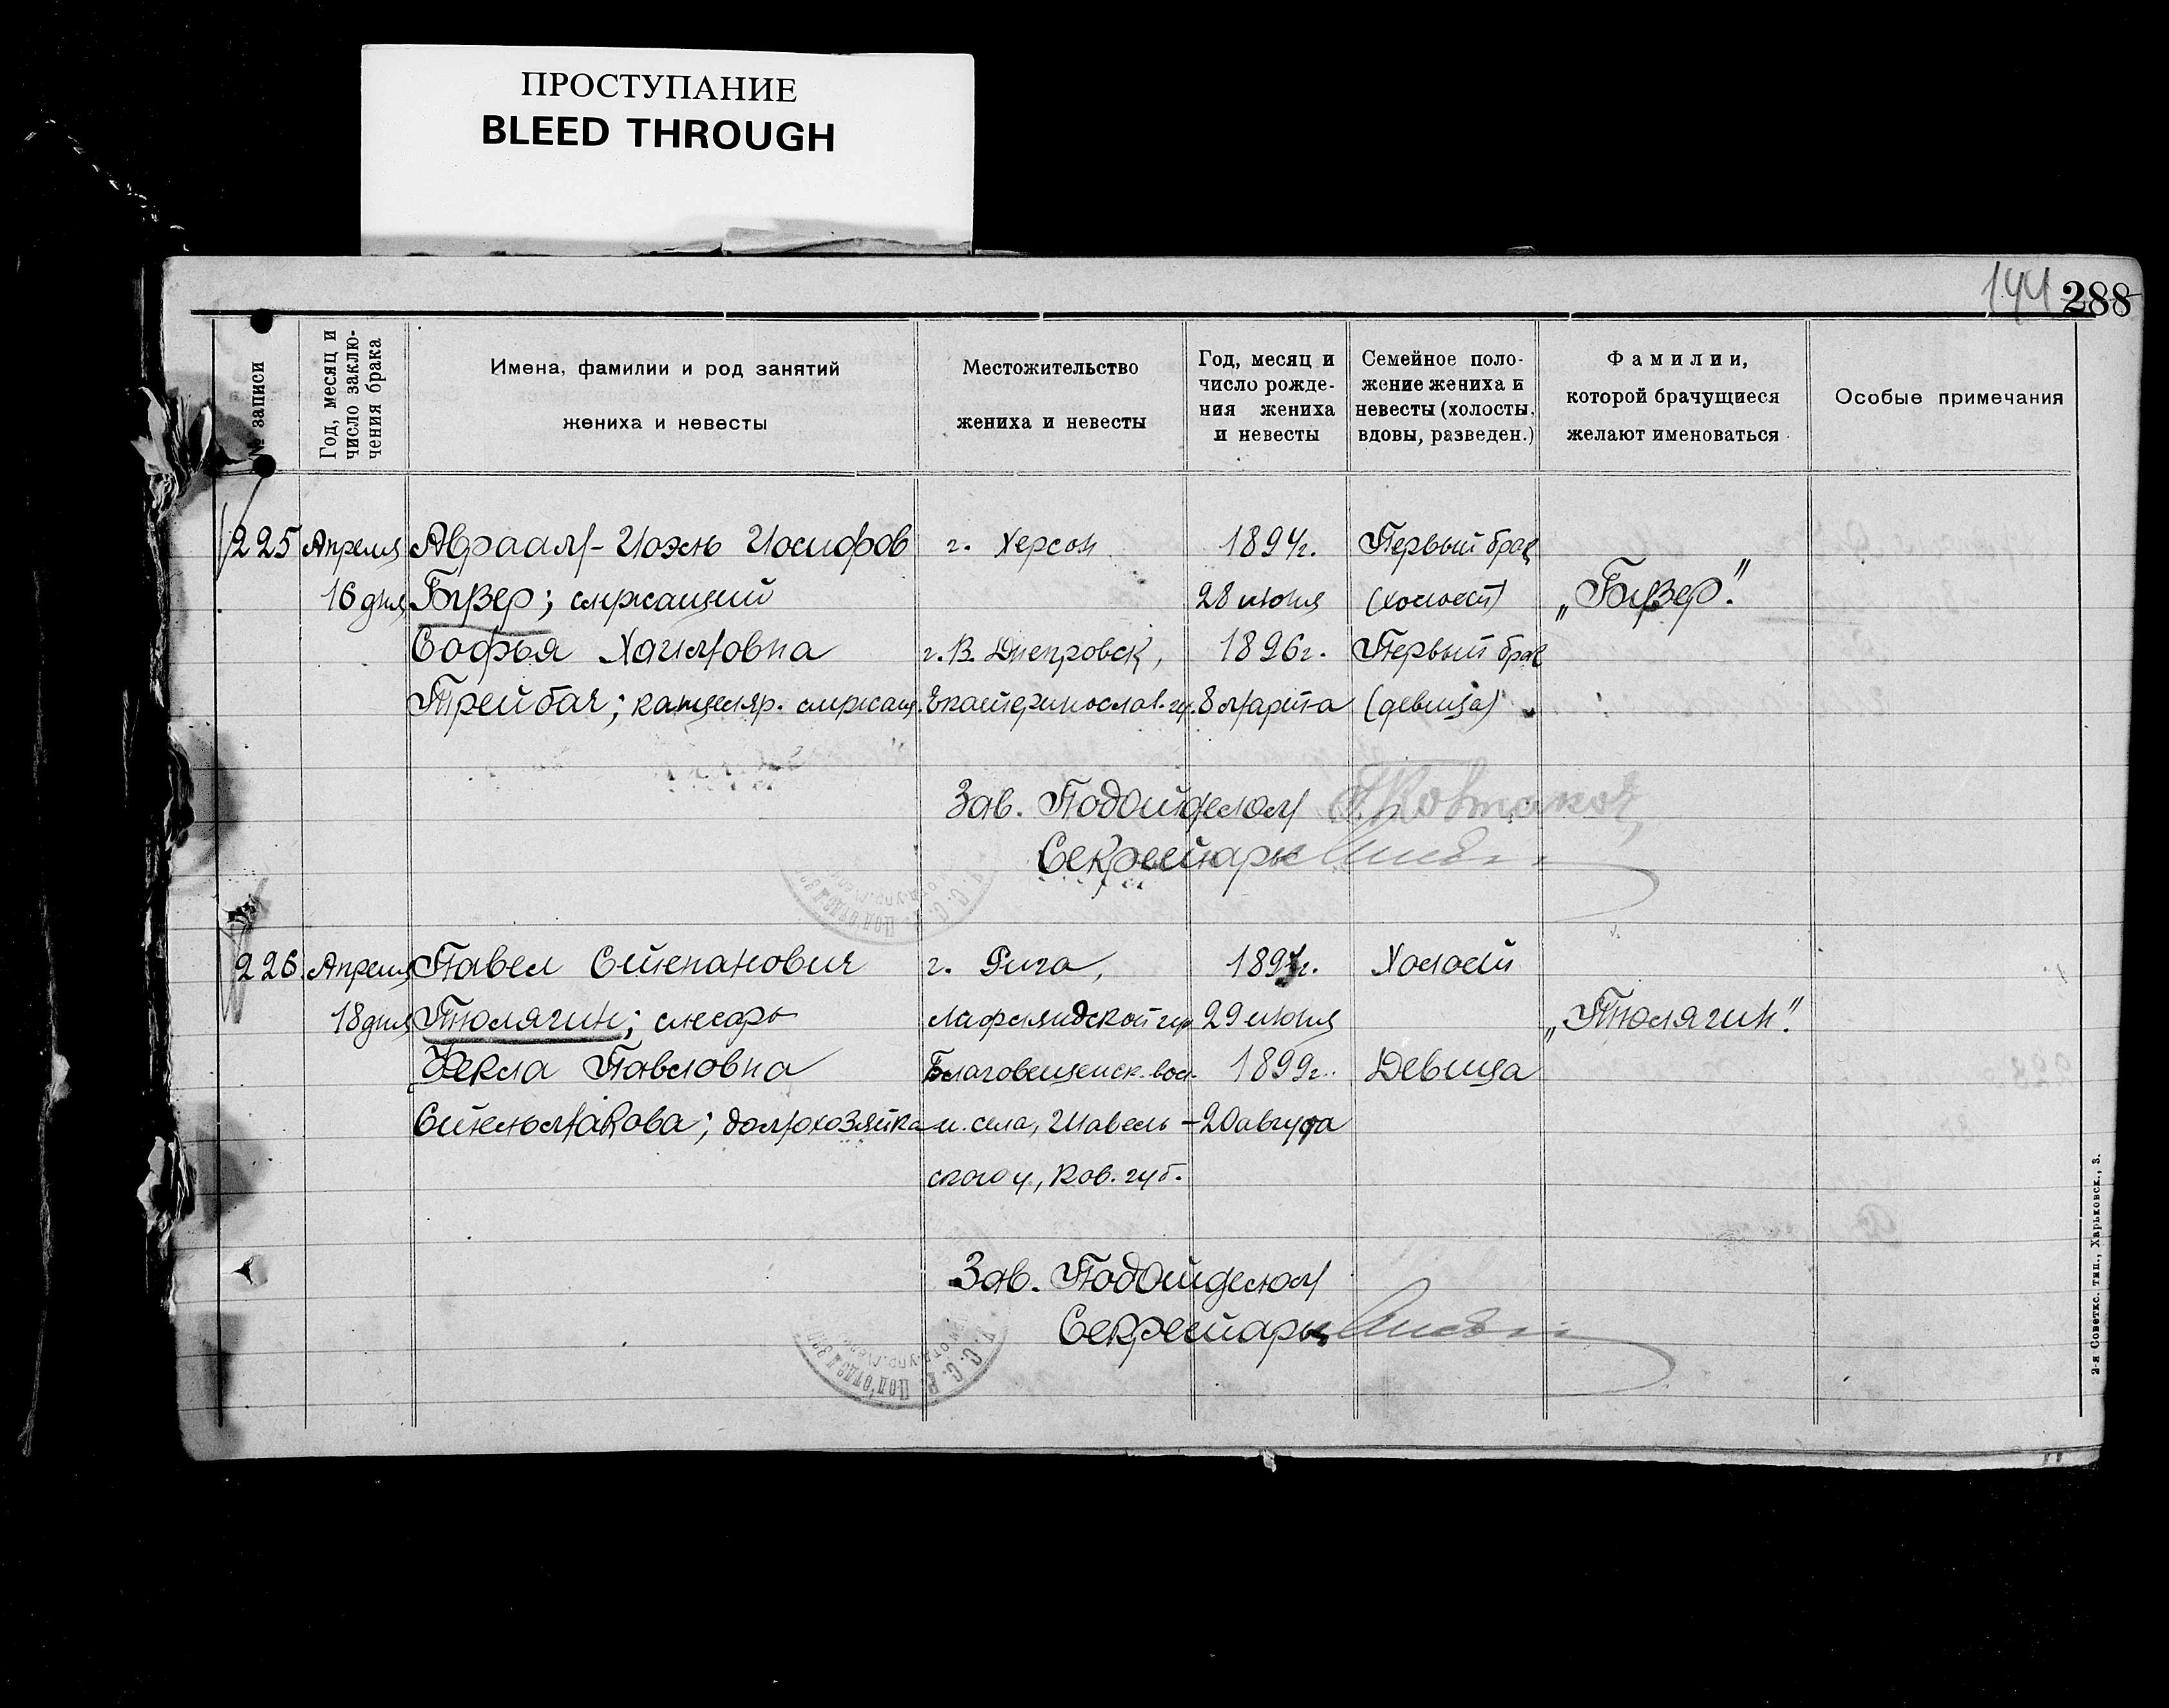 ПРОСТУПАНИЕ
BLEED THROUGH
144 288
№ записи
Год, месяц и
число заклю-
чения брака
Имена, фамилии и род занятий
жениха и невесты
Местожительство
жениха и невесты
Год, месяц и
число рожде-
ния жениха
и невесты
Семейное поло-
жение жениха и
невесты (холосты,
вдовы, разведен.)
Фамилии,
которой брачущиеся
желают именоваться
Особые примечания
225 Апреля Авраам-Иоэль Иосифов г. Херсон 1894г. Первый брак
16 дня Бузер; служащий 28 июня (холост) „Бузер".
Софья Хаимовна г. В. Днепровск, 1896г. Первый брак
Трейбач; канцеляр. служащ. Екатеринослав. гу. 8 марта (девица)
Зав. Подотделом
Секретарь
226 Апреля Павел Степанович г. Рига, 1897г. Холост
18 дня Тюлягин; слесарь Лифляндской гу. 29 июня „Тюлягин".
Фекла Павловна Благовещенск. вол. 1899г. Девица
Стельмакова; домохозяйка и села, Шавель- 20 августа
ского у, Ков. губ.
Зав. Подотделом
Секретарь
2-я Советск. тип., Харьковск., 3.